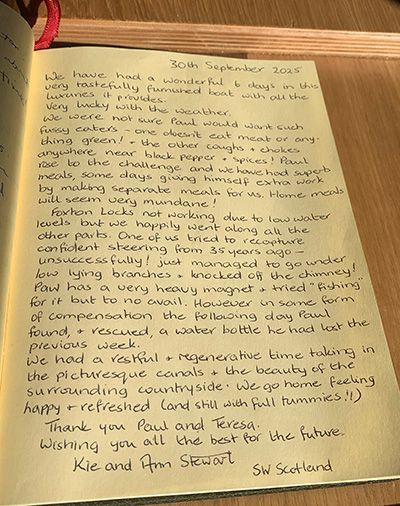 30th September 2025
We have had a wonderful 6 days in this
very tastefully furnished boat with all the
luxuries it provides.
Very lucky with the weather.
We were not sure Paul would want such
fussy eaters - one doesn't eat meat or any-
thing green! + the other coughs + chokes
anywhere near black pepper + spices! Paul
rose to the challenge and we have had superb
meals, some days giving himself extra work
by making separate meals for us. Home meals
will seem very mundane!
Foxton Locks not working due to low water
levels but we happily went along all the
other parts. One of us tried to recapture
confident steering from 35 years ago -
unsuccessfully! just managed to go under
low lying branches + knocked off the chimney!
Paul has a very heavy magnet + tried "fishing"
for it but to no avail. However in some form
of compensation the following day Paul
found, + rescued, a water bottle he had lost the
previous week.
We had a restful + regenerative time taking in
the picturesque canals + the beauty of the
surrounding countryside. We go home feeling
happy + refreshed (and still with full tummies!!)
Thank you Paul and Teresa.
Wishing you all the best for the future.
Kie and Ann Stewart
SW Scotland